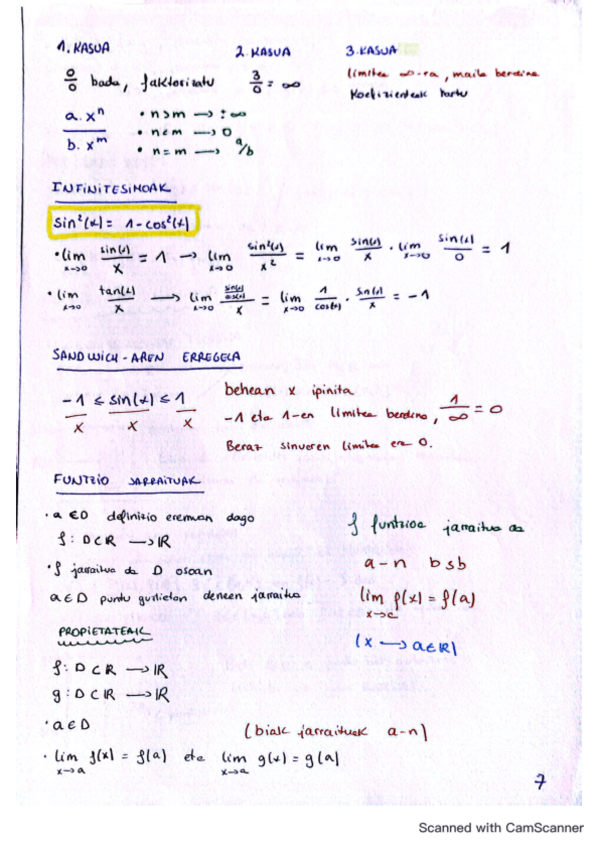 1. KASUA
0/0 bada, faktorizatu
a.xⁿ / b.xᵐ
• n>m → ±∞
• n<m → 0
• n=m → a/b
2. KASUA
3/0 = ∞
3. KASUA
limitea ∞-ra, maila berdina
koefizienteak hartu
INFINITESIMOAK
sin²(x) = 1-cos²(x)
• lim x→0 sin(x)/x = 1 → lim x→0 sin²(x)/x² = lim x→0 sin(x)/x · lim x→0 sin(x)/0 = 1
• lim x→0 tan(x)/x → lim x→0 (sin(x)/cos(x))/x = lim x→0 1/cos(x) · sin(x)/x = -1
SANDWICH-AREN ERREGELA
-1/x ≤ sin(x)/x ≤ 1/x
behean x ipinita
-1 eta 1-en limitea berdina, 1/∞ = 0
Beraz sinuaren limitea ere 0.
FUNTZIO JARRAITUAK
• a ∈ D definizio eremuan dago
f: D⊂R → R
• f jarraitua da D osoan
a ∈ D puntu guztietan denean jarraitua
f funtzioa jarraitua da
a-n bsb
lim x→a f(x) = f(a)
(x → a∈R)
PROPIETATEAK
f: D ⊂ R → R
g: D ⊂ R → R
• a ∈ D
(biak jarraituak a-n)
• lim x→a f(x) = f(a) eta lim x→a g(x) = g(a)
7
Scanned with CamScanner